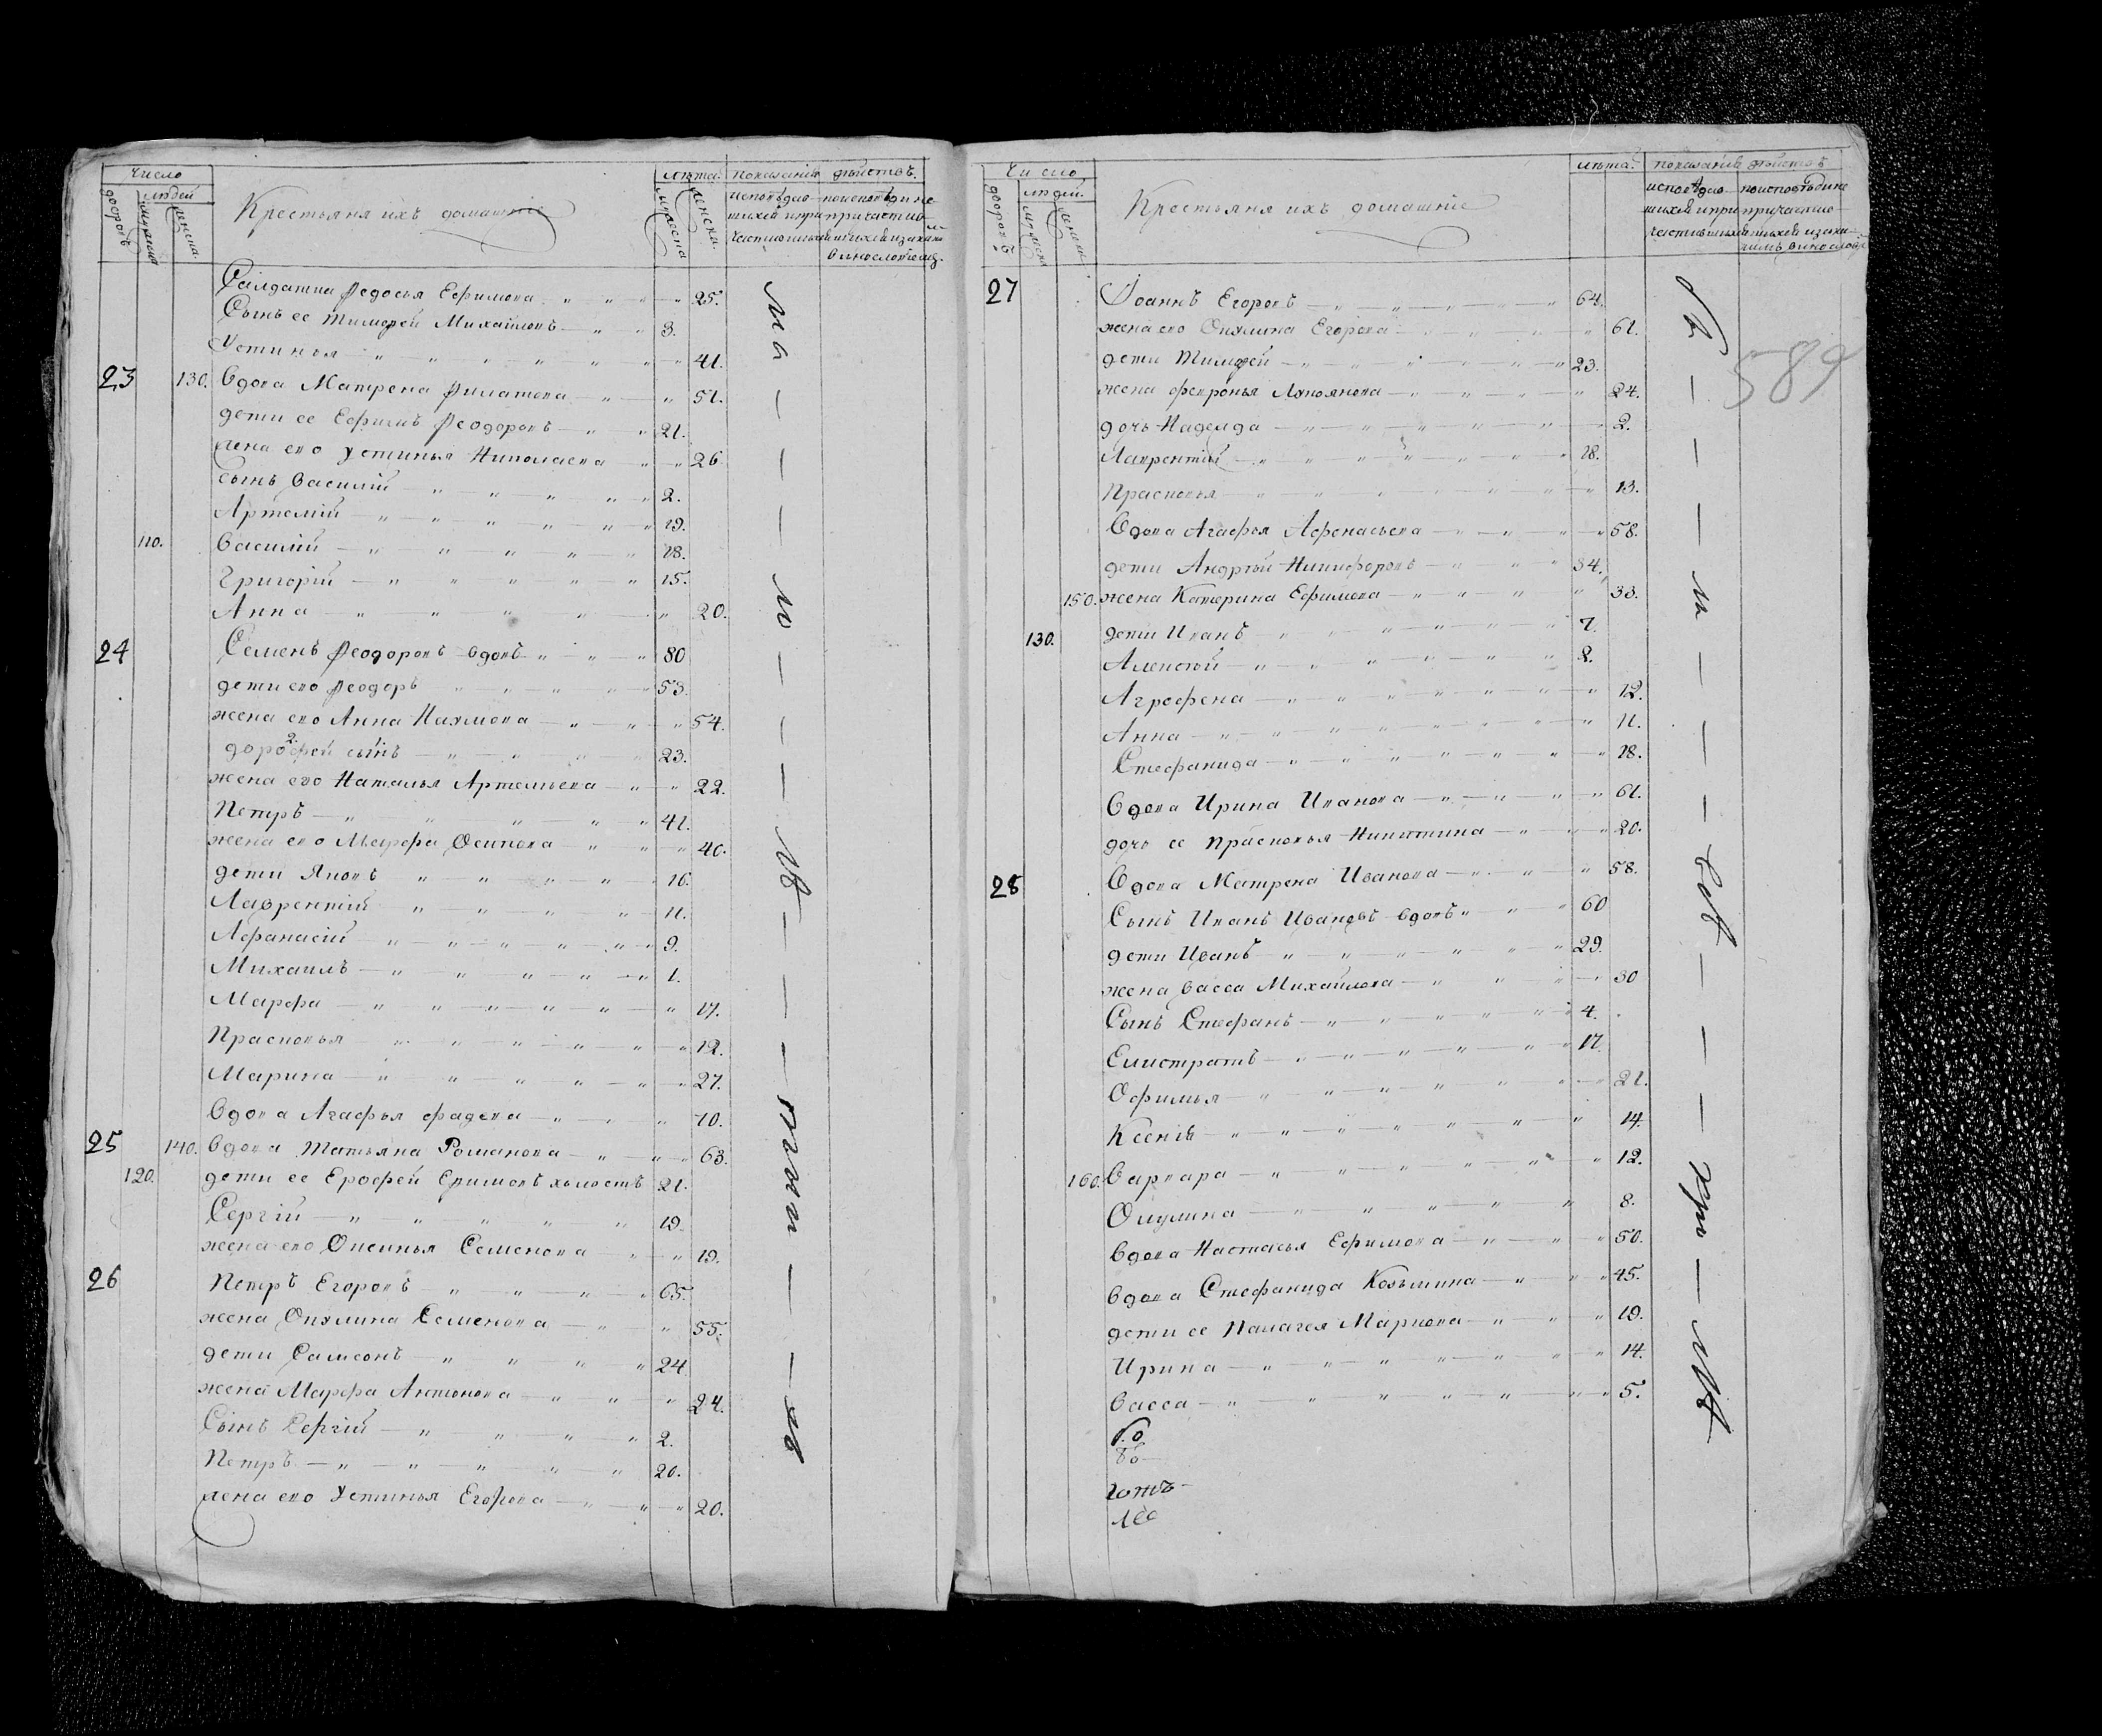 Число
людей
дворовъ
мужеска
женска
Крестьяня ихъ домашніе
лѣта.
мужеска
женска
показаніе дѣйствъ.
Салдатка Ѳедосья Ефимова 25.
Сынъ ее Тимоѳей Михайловъ 3.
Устинья 41.
23 130. вдова Матрена Филатова 51.
дети ее Ефимъ Ѳеодоровъ 21.
жена ево Устинья Николаева 26
сынъ Василій 2.
Артемій 19.
110. Василій 18.
Григорій 15.
Анна 20.
24 Семенъ Ѳеодоровъ вдовъ 80
дети ево Ѳеодоръ 53.
жена ево Анна Наумова 54.
дороѳей сынъ 23.
2.
жена его Наталья Артемьева 22.
Петръ 41.
жена ево Марѳа Осипова 40.
дети Яковъ 16.
Лаврентій 11.
Афанасій 9.
Михаилъ 1.
Марфа 17.
Прасковья 12.
Марина 27.
вдова Агафья фадева 70.
25 140. вдова Татьяна Романова 63.
120. дети ее Ерофей Еримовъ холостъ 21.
Сергій 19.
жена ево Оксинья Семенова 19.
26 Петръ Егоровъ 65.
жена Окулина Семенова 55.
дети Самсонъ 24
жена Марфа Антонова 24.
Сынъ Сергій 2.
Петръ 20.
жена ево Устинья Егорова 20.
Число
людей.
дворовъ
мужеска
женска
Крестьяня ихъ домашніе
лѣта.
показаніе дѣйствъ
589
27 Іоаннъ Егоровъ 64.
жена ево Окулина Егорова 61.
дети Тимоѳей 23.
жена Февронья Лукоянова 24.
дочь Надежда 2.
Лаврентій 18.
Прасковья 13.
Вдова Агафья Афонасьева 58.
дети Андрѣй Никифоровъ 34.
150. жена Катерина Ефимова 33.
130. дети Иванъ 7.
Алексѣй 2.
Агрофена 12.
Анна 11.
Стефанида 18.
Вдова Ирина Иванова 61.
дочь ее Прасковья Никитина 20.
28 Вдова Матрена Иванова 58.
Сынъ Иванъ Ивановъ вдовъ 60
дети Иванъ 29.
жена Васса Михайлова 30
Сынъ Стефанъ 4.
Елистратъ 17.
Офимья 21.
Ксенія 14.
160. Варвара 12.
Окулина 8.
вдова Настасья Ефимова 50.
вдова Стефанида Козьмина 45.
дети ее Палагея Маркова 19.
Ирина 14.
Васса 5.